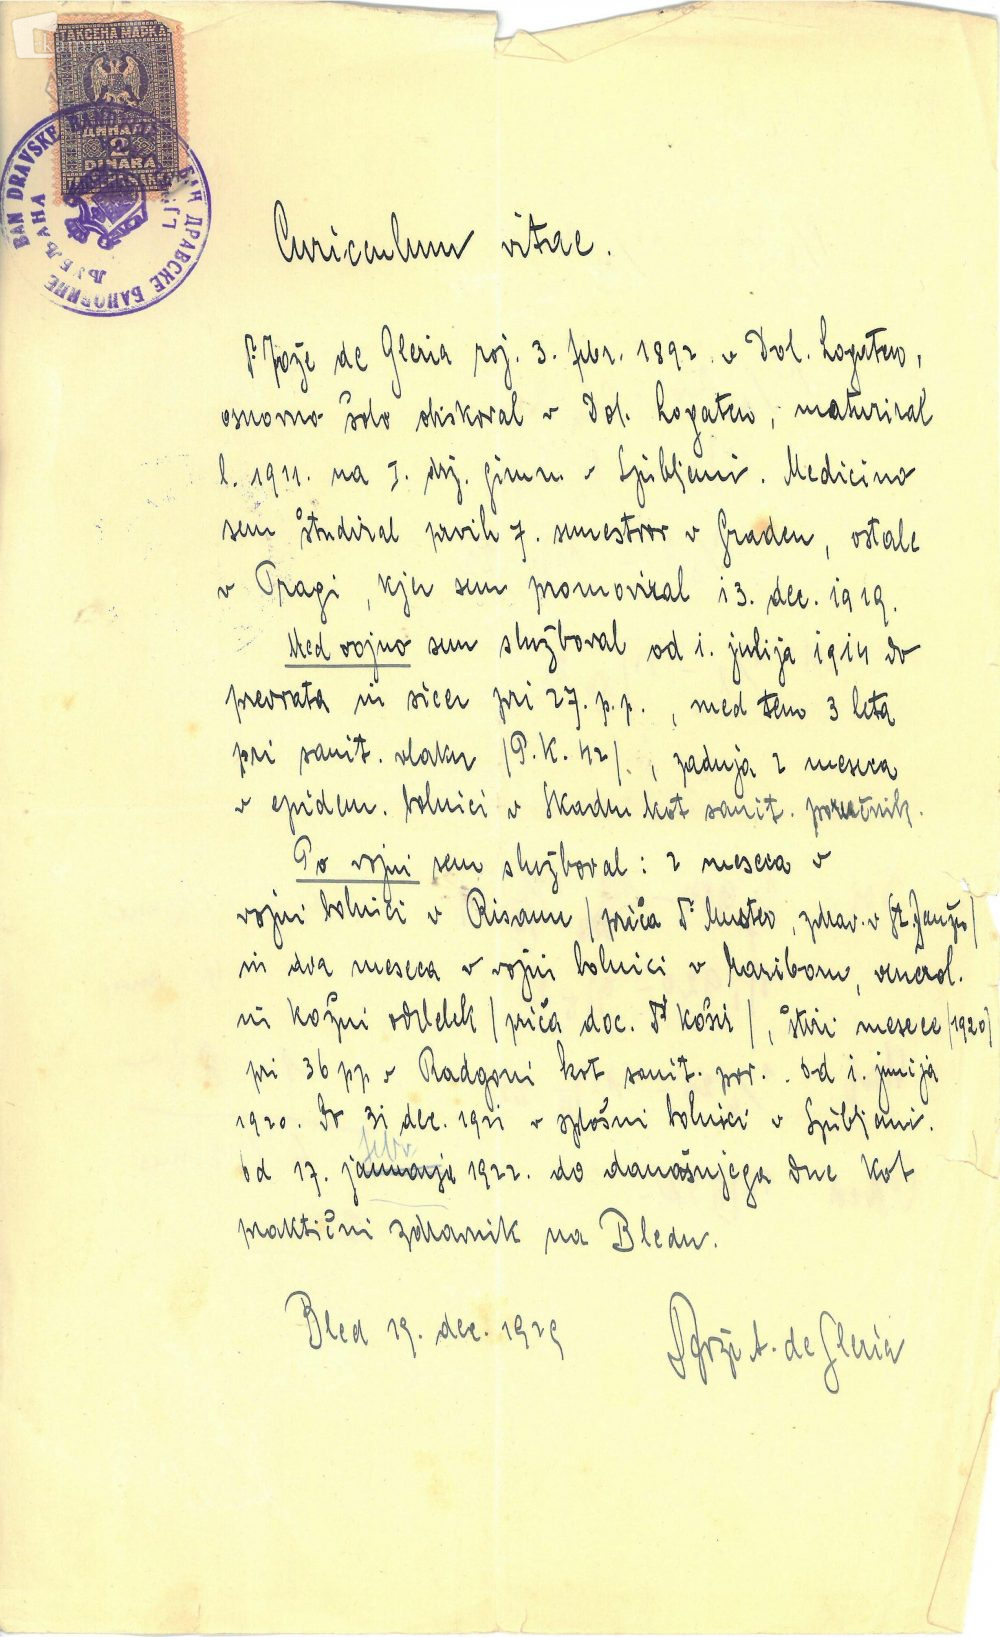 kamra
ТАКСЕНА МАРКА
ДИНАРА
2
DINARA
BAN DRAVSKE
БАН ДРАВСКЕ БАНОВИНЕ
ЉУБЉАНА
Curiculum vitae.
Dr Jože de Gleria roj. 3. febr. 1892 v Dol. Logatcu,
osnovno šolo obiskoval v Dol. Logatcu, maturiral
l. 1911. na I. drž. gimn. v Ljubljani. Medicino
sem študiral prvih 7. semestrov v Gradcu, ostale
v Pragi, kjer sem promoviral 13. dec. 1919.
Med vojno sem služboval od 1. julija 1914 do
prevrata in sicer pri 27. p.p., med tem 3 leta
pri sanit. vlaku /P.K. 42/., zadnja 2 meseca
v epidem. bolnici v Skadru kot sanit. poročnik.
Po vojni sem služboval: 2 meseca v
vojni bolnici v Risanu /priča Dr Mušter, zdrav. v Št. Janžu/
in dva meseca v vojni bolnici v Mariboru, vencrol.
in kožni oddelek /priča doc. Dr Košir/, štiri mesece /1920/
pri 36 pp v Radgoni kot sanit. por.. Od 1. junija
1920. do 31 dec. 1921 v splošni bolnici v Ljubljani.
febr
Od 17. januarja 1922. do današnjega dne kot
praktični zdravnik na Bledu.
Bled 19. dec. 1929
Dr Jože A. de Gleria